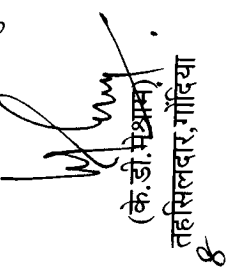 (के.डी.मेश्राम)
तहसिलदार,गोंदिया